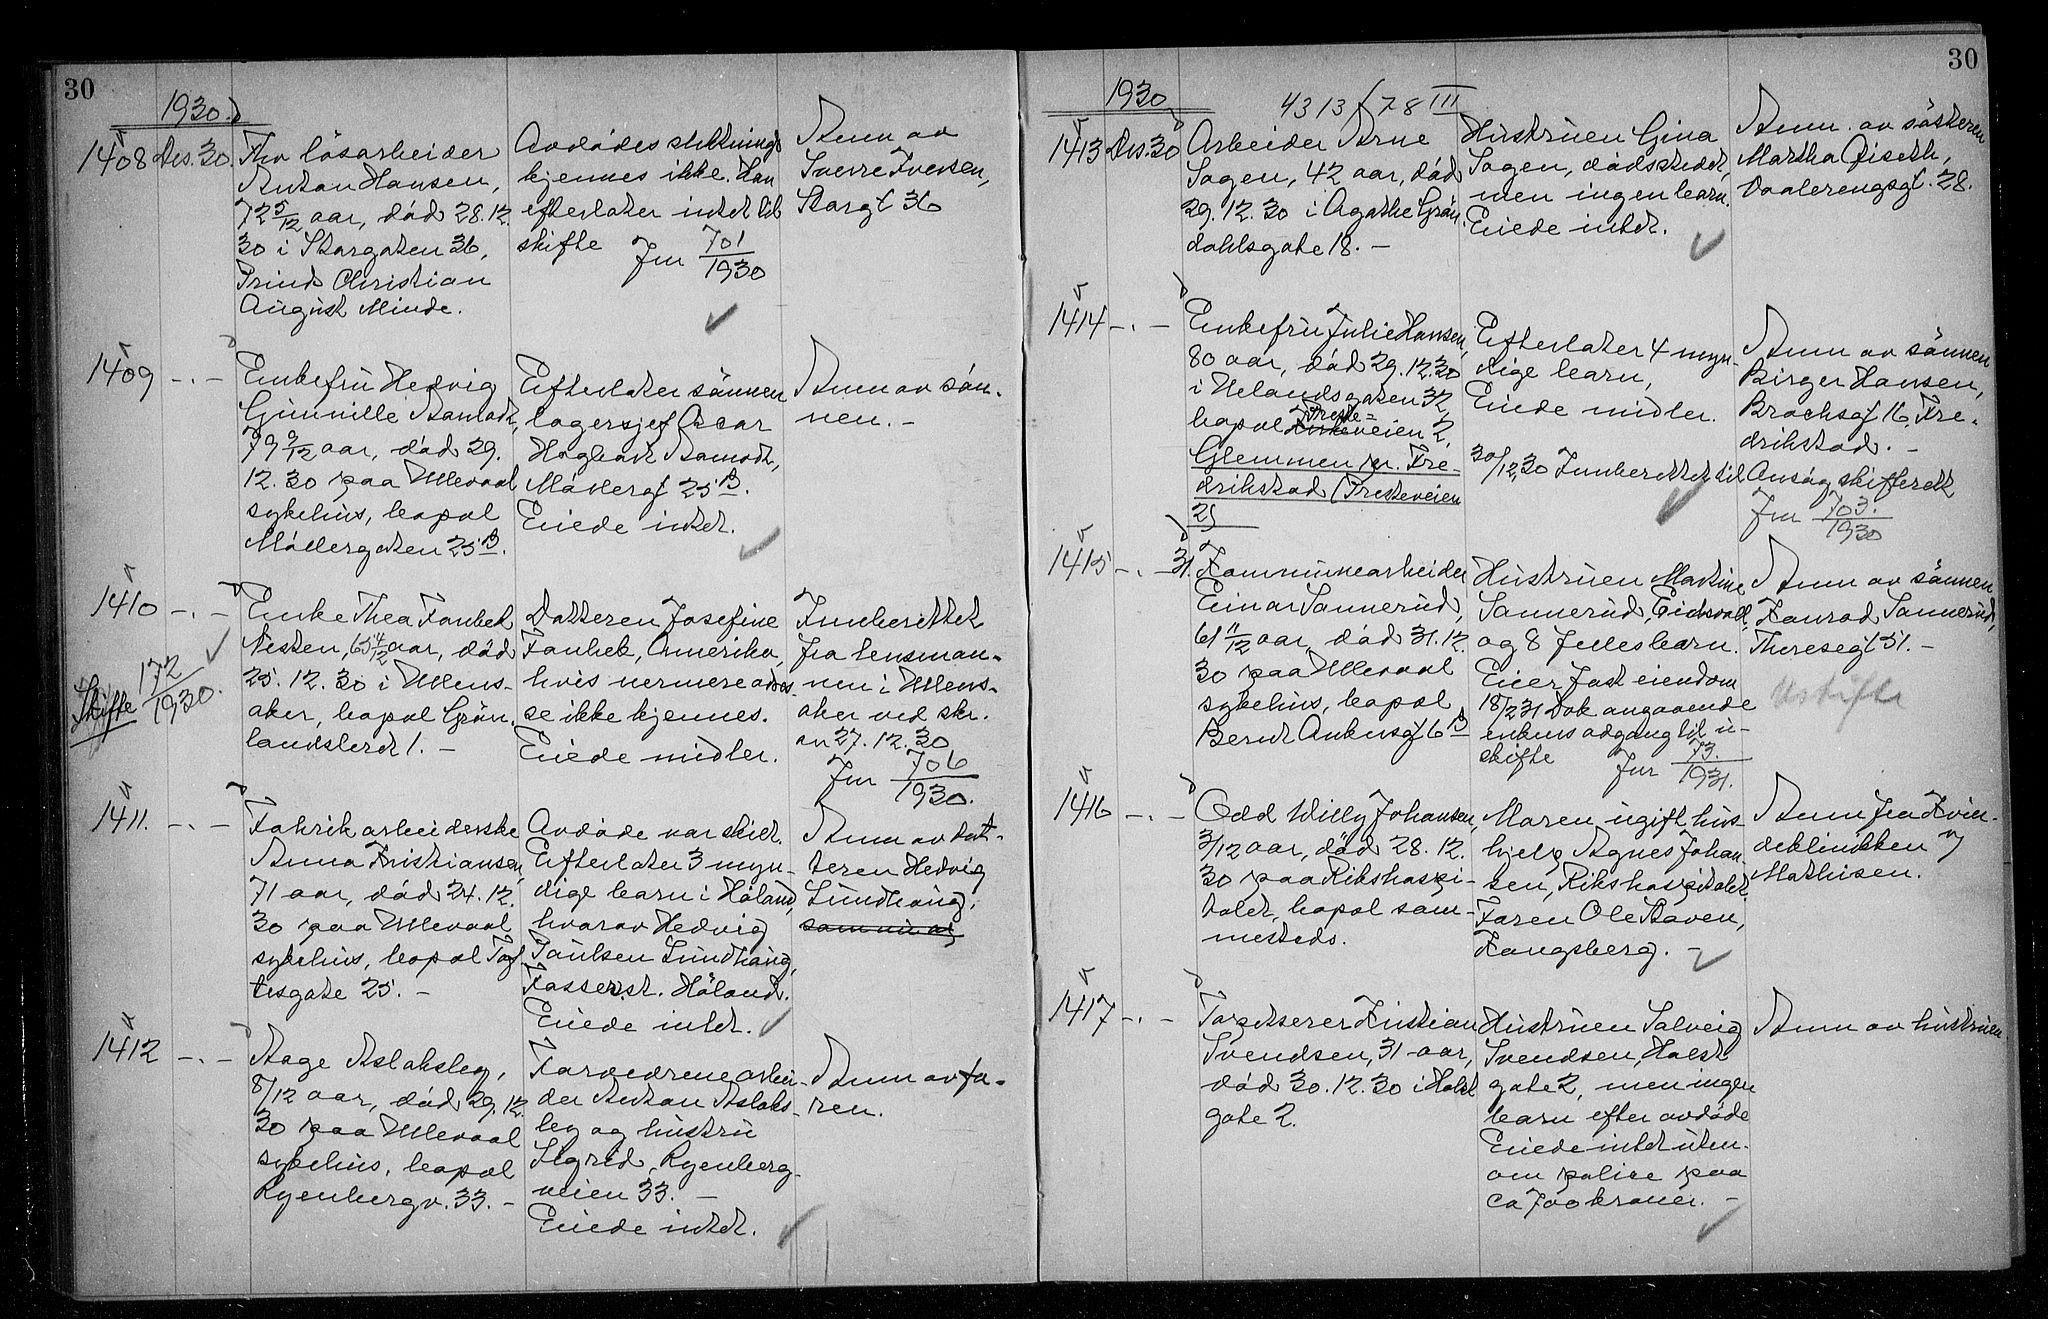 30
1930.
1408 Des. 30. Fhv løsarbeider
Anton Hansen,
72 5/12 aar, død 28.12.
30 i Storgaten 36,
Prinds Christian
August Minde.
Avdødes slektninge
kjennes ikke. Han
efterlater intet til
skifte
Jnr 701/1930
Anm av
Sverre Iversen,
Storgt 36
1409 -.-
Enkefru Hedvig
Gunnille Aamodt,
79 9/12 aar, død 29.
12.30 paa Ullevaal
sykehus, bopæl
Møllergaten 25 B.
Efterlater sønnen
lagersjef Oscar
Hogbart Aamodt,
Møllergt 25 B.
Eiede intet.
Anm av søn-
nen. -
1410 -.-
Skifte 172/1930.
Enke Thea Fanbek
Nesten, 65 4/12 aar, død
25.12.30 i Ullens-
aker, bopæl Grøn-
landsleret 1. -
Datteren Josefine
Fanbek, Amerika,
hvis nermere adres-
se ikke kjennes.
Eiede midler.
Innberettet
fra lensman-
nen i Ullens-
aker ved skr.
av 27.12.30
Jnr 706/1930.
1411. -.-
Fabrikarbeiderske
Anna Kristiansen,
71 aar, død 24.12.
30 paa Ullevaal
sykehus, bopæl Tof-
tesgate 25. -
Avdøde var skilt.
Efterlater 3 myn-
dige barn i Høland,
hvorav Hedvig
Paulsen Lundhaug,
Fosser st. Høland.
Eiede intet.
Anm av dat-
teren Hedvig
Lundhaug,
1412 -.-
Aage Aslaksby,
8/12 aar, død 29.12.
30 paa Ullevaal
sykehus, bopæl
Ryenbergv. 33. -
Farveriarbei-
der Anton Aslaks-
by og hustru
Sigrid, Ryenberg-
veien 33. -
Eiede intet.
Anm av fa-
ren.
30
1930
4313/78 III
1413 Des. 30
Arbeider Arne
Sogen, 42 aar, død
29.12.30 i Agathe Grøn-
dahlsgate 18. -
Hustruen Gina
Sogen, dødsstedet,
men ingen barn.
Eiede intet.
Anm. av søsteren
Martha Fiseth,
Vaalerengsgt. 28.
1414 -.-
Enkefru Julie Hansen,
80 aar, død 29.12.30
i Uelandsgaten 32,
bopæl Kirkeveien 2,
Treste=
Glemmen pr. Fre-
drikstad (Tresteveien
2)
Efterlater 4 myn-
dige barn,
Eiede midler.
30/12.30 Innberettet til
Anm av sønnen
Birger Hansen,
Brochsgt 16, Fre-
drikstad. -
Onsøy skifterett
Jnr 703./1930
1415 -.- 31.
Kommunearbeider
Einar Sannerud,
61 11/12 aar, død 31.12.
30 paa Ullevaal
sykehus, bopæl
Bernt Ankersgt 6 B
Hustruen Martine
Sannerud, Eidsvoll,
og 8 fellesbarn.
Eier fast eiendom
18/2 31 Dok angaaende
enkens adgang til u-
skifte
Jnr 73./1931.
Anm av sønnen
Konrad Sannerud,
Theresegt 51. -
Uskifte
1416 -.-
Odd Willy Johansen,
3/12 aar, død 28.12.
30 paa Rikshospi-
talet, bopæl sam-
mesteds.
Moren ugift hus-
hjelp Agnes Johan-
sen, Rikshospitalet
Faren Ole Staven,
Kongsberg. -
Anm fra Kvin-
deklinikken v
Mathisen.
1417 -.-
Tapetserer Kristian
Svendsen, 31 aar,
død 30.12.30 i Holst
gate 2.
Hustruen Solveig
Svendsen, Holst
gate 2, men ingen
barn efter avdøde
Eiede intet uten-
om police paa
ca 700 kroner. -
Anm av hustruen.